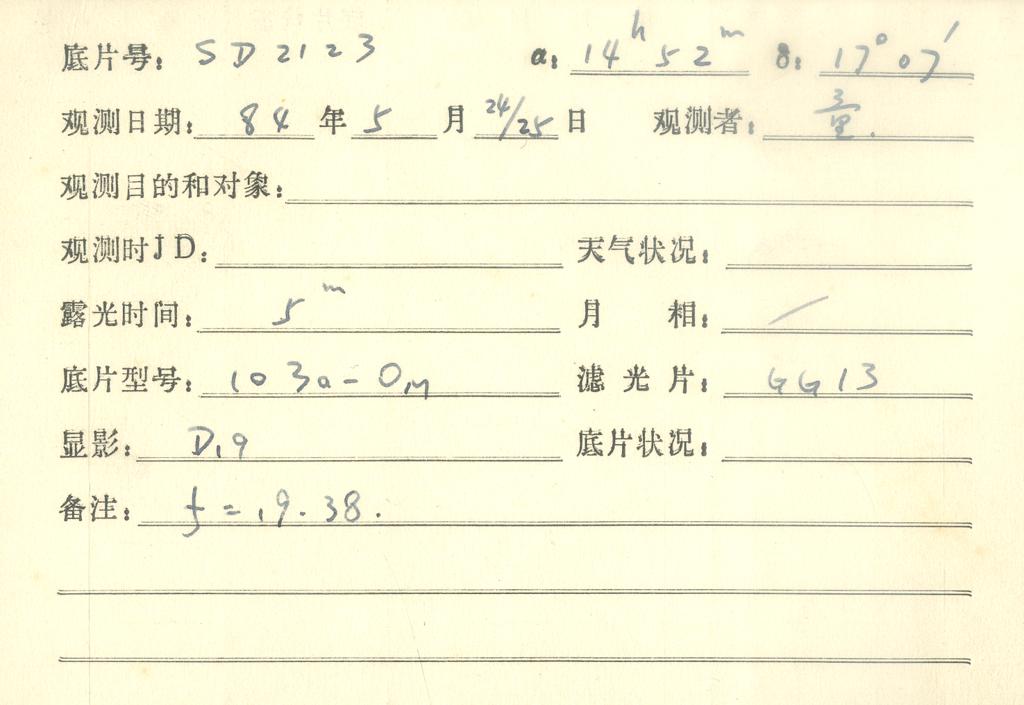 底片号: SD2123 α: 14ʰ 52ᵐ δ: 17°07′
观测日期: 84 年 5 月 24/25 日 观测者: 童.
观测目的和对象:
观测时JD: 天气状况:
露光时间: 5ᵐ 月 相: /
底片型号: 103a-O 滤光片: GG13
显影: D19
底片状况:
备注: f = 19.38.